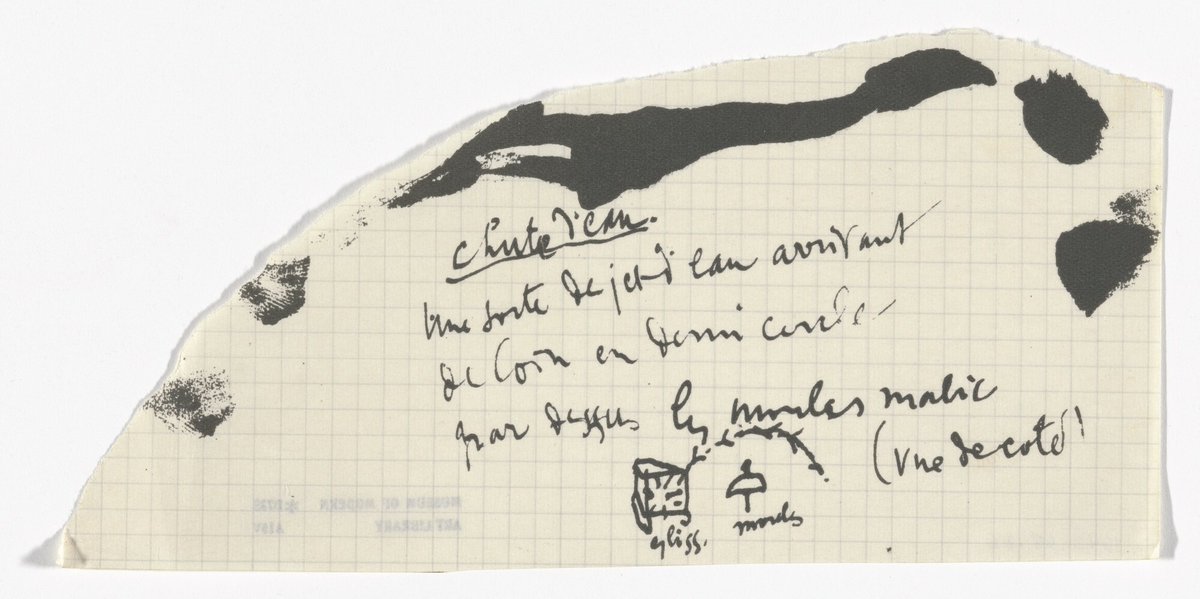 chute d'eau.
Une sorte de jet d'eau arrivant
de loin en demi cercle
par dessus les moules malic
(vue de coté)
gliss.
moules
MUSEUM OF MODERN
ART LIBRARY